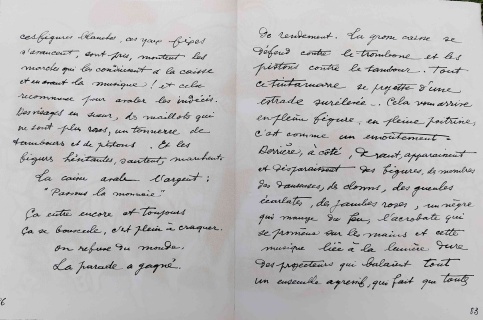 ces figures blanches, ces yeux fixes
s'avancent, sont pris, montent les
marches qui les conduisent à la caisse
et en avant la musique! et cela
recommence pour avaler les indécis.
Des visages en sueur, des maillots qui
ne sont plus roses, un tonnerre de
tambours et de pistons. Et les
figures hésitantes, sautent, marchent.
La caisse avale l'argent:
"Passons la monnaie"
Ça entre encore et toujours
Ça se bouscule, c'est plein à craquer,
on refuse du monde.
La parade a gagné.
6
de rendement. La grosse caisse se
défend contre le trombone et les
pistons contre le tambour. Tout
ce tintamarre se projette d'une
estrade surélevée. Cela vous arrive
en pleine figure, en pleine poitrine,
c'est comme un envoûtement
Derrière, à côté, devant, apparaissent
et disparaissent des figures, des membres
des danseuses, des clowns, des gueules
écarlates, des jambes roses, un nègre
qui mange du feu, l'acrobate qui
se promène sur les mains et cette
musique liée à la lumière dure
des projecteurs qui balaient tout
un ensemble agressif, qui fait que toutes